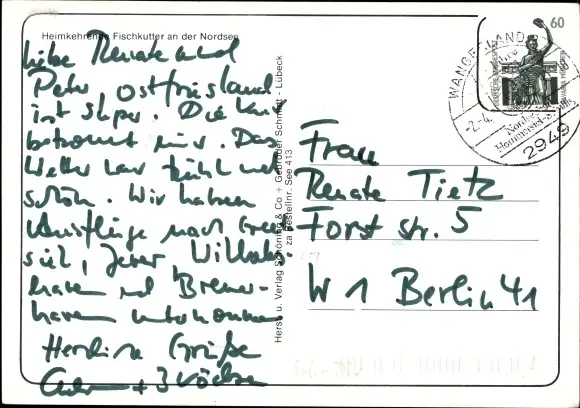 Heimkehrende Fischkutter an der Nordsee
liebe Renate und
Peter, Ostfriesland
ist super. Die Luft
bekommt mir. Das
Wetter war kühl und
schön. Wir haben
Ausflüge nach Greet-
siel, Jever, Wilhelms-
haven und Bremer-
haven unternommen
Herzliche Grüße
Herst. u. Verlag Schöning & Co + Gebrüder Schmidt - Lübeck
zu Bestellnr. See 413
60
WANGERLAND
-2.-4.
2949
Frau
Renate Tietz
Forst str. 5
W 1 Berlin 41